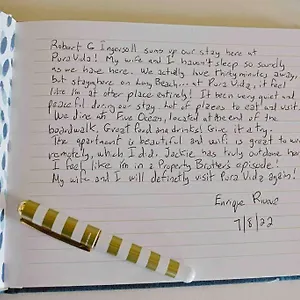 Robert G Ingersoll sums up our stay here at
Pura Vida! My wife and I haven't sleep so surely
as we have here. We actually live thirty minutes away,
but staying here on Long Beach... at Pura Vida, it feel
like I'm at other place entirely! It been very quiet and
peaceful during our stay. Lot of places to eat and visit.
We dine at Five Ocean, located at the end of the
boardwalk. Great food and drinks! Give it a try.
The apartment is beautiful and wifi is great to work
remotely, which I did. Jackie has truly outdone her
I feel like I'm in a Property Brothers episode!
My wife and I will definetly visit Pura Vida again!
Enrique
7/8/22